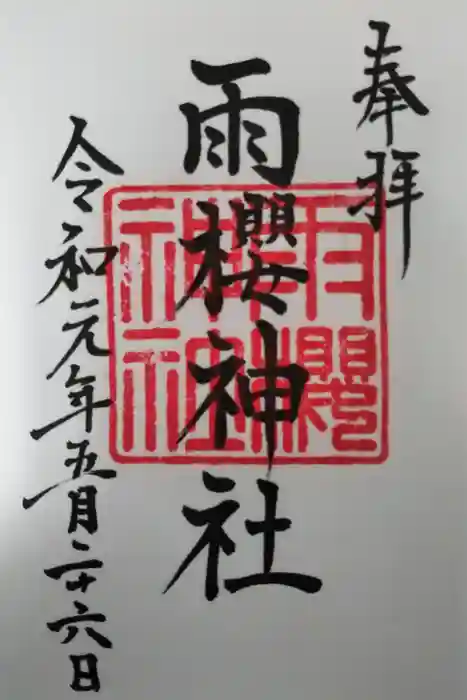 奉拝
雨櫻神社
令和元年五月二十六日
雨櫻
神社